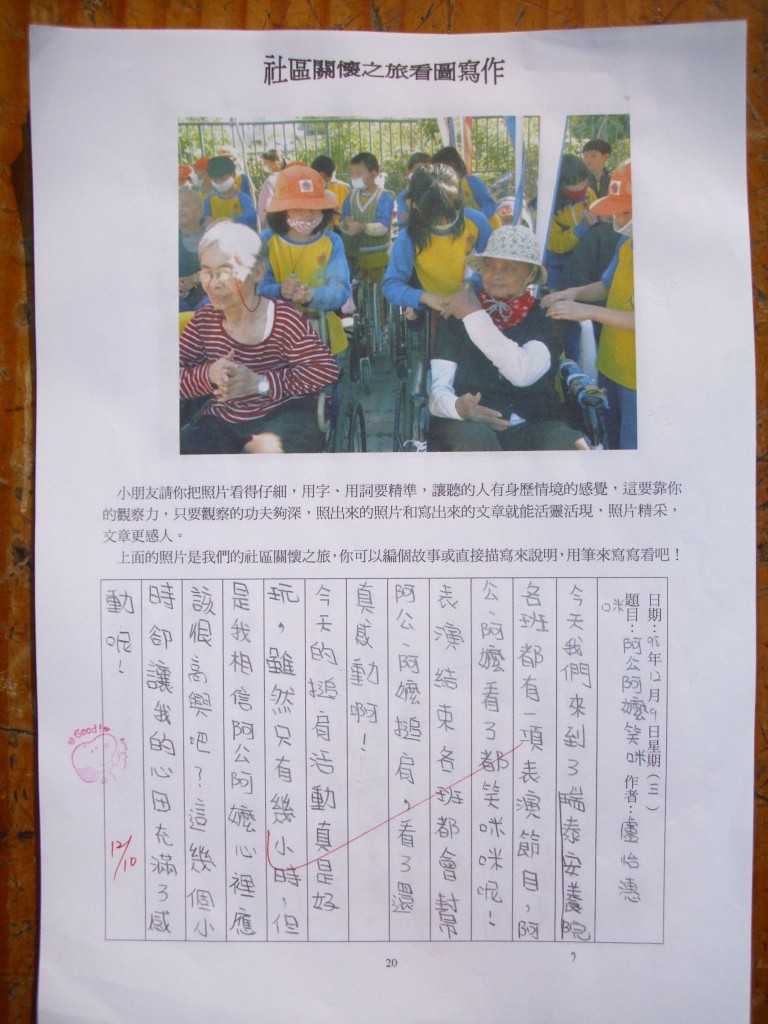 社區關懷之旅看圖寫作
小朋友請你把照片看得仔細，用字、用詞要精準，讓聽的人有身歷情境的感覺，這要靠你
的觀察力，只要觀察的功夫夠深，照出來的照片和寫出來的文章就能活靈活現，照片精采，
文章更感人。
上面的照片是我們的社區關懷之旅，你可以編個故事或直接描寫來說明，用筆來寫寫看吧！
日期：98年12月9日星期（三）
題目：阿公阿嬤笑咪咪 作者：盧怡憓
今天我們來到了瑞泰安養院，
各班都有一項表演節目，阿
公、阿嬤看了都笑咪咪呢！
表演結束各班都會幫
阿公、阿嬤搥肩，看了還
真感動啊！
今天的搥肩活動真是好
玩，雖然只有幾小時，但
是我相信阿公阿嬤心裡應
該很高興吧？這幾個小
時卻讓我的心田充滿了感
動呢！
Good!
12/10
20